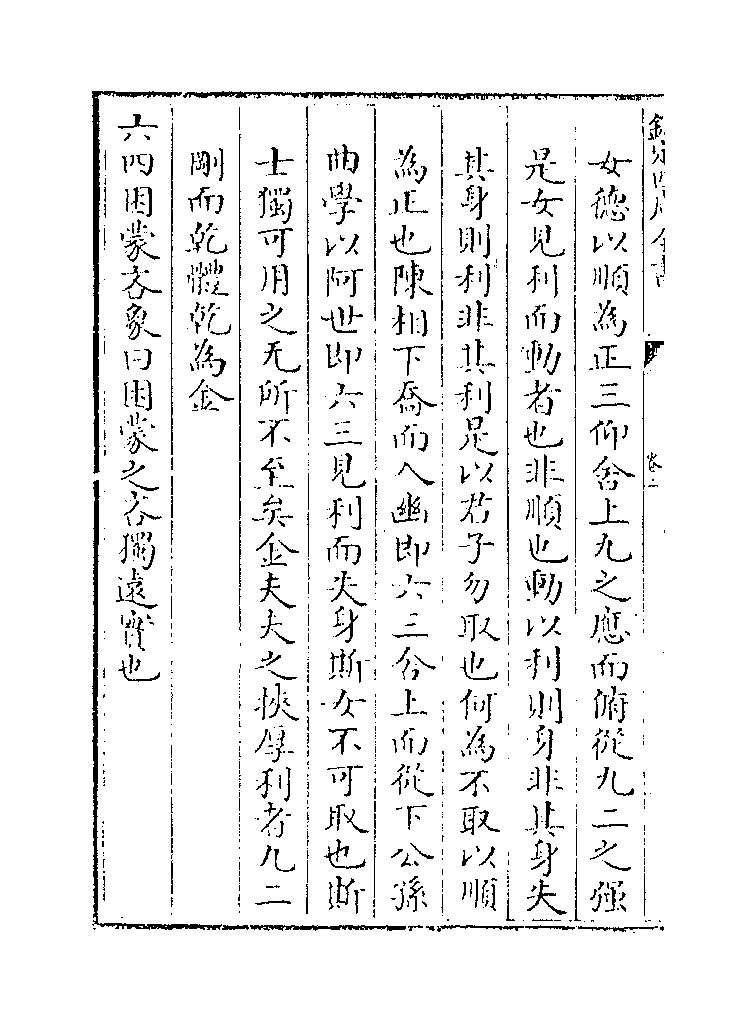 女德以順為正三仰舍上九之應而俯從九二之强
是女見利而動者也非順也動以利則身非其身失
其身則利非其利是以君子勿取也何為不取以順
為正也陳相下喬而入幽即六三舍上而從下公孫
曲學以阿世即六三見利而失身斯女不可取也斯
士獨可用之无所不至矣金夫夫之挾厚利者九二
剛而乾體乾為金
六四困蒙吝象曰困蒙之吝獨遠實也
卷二